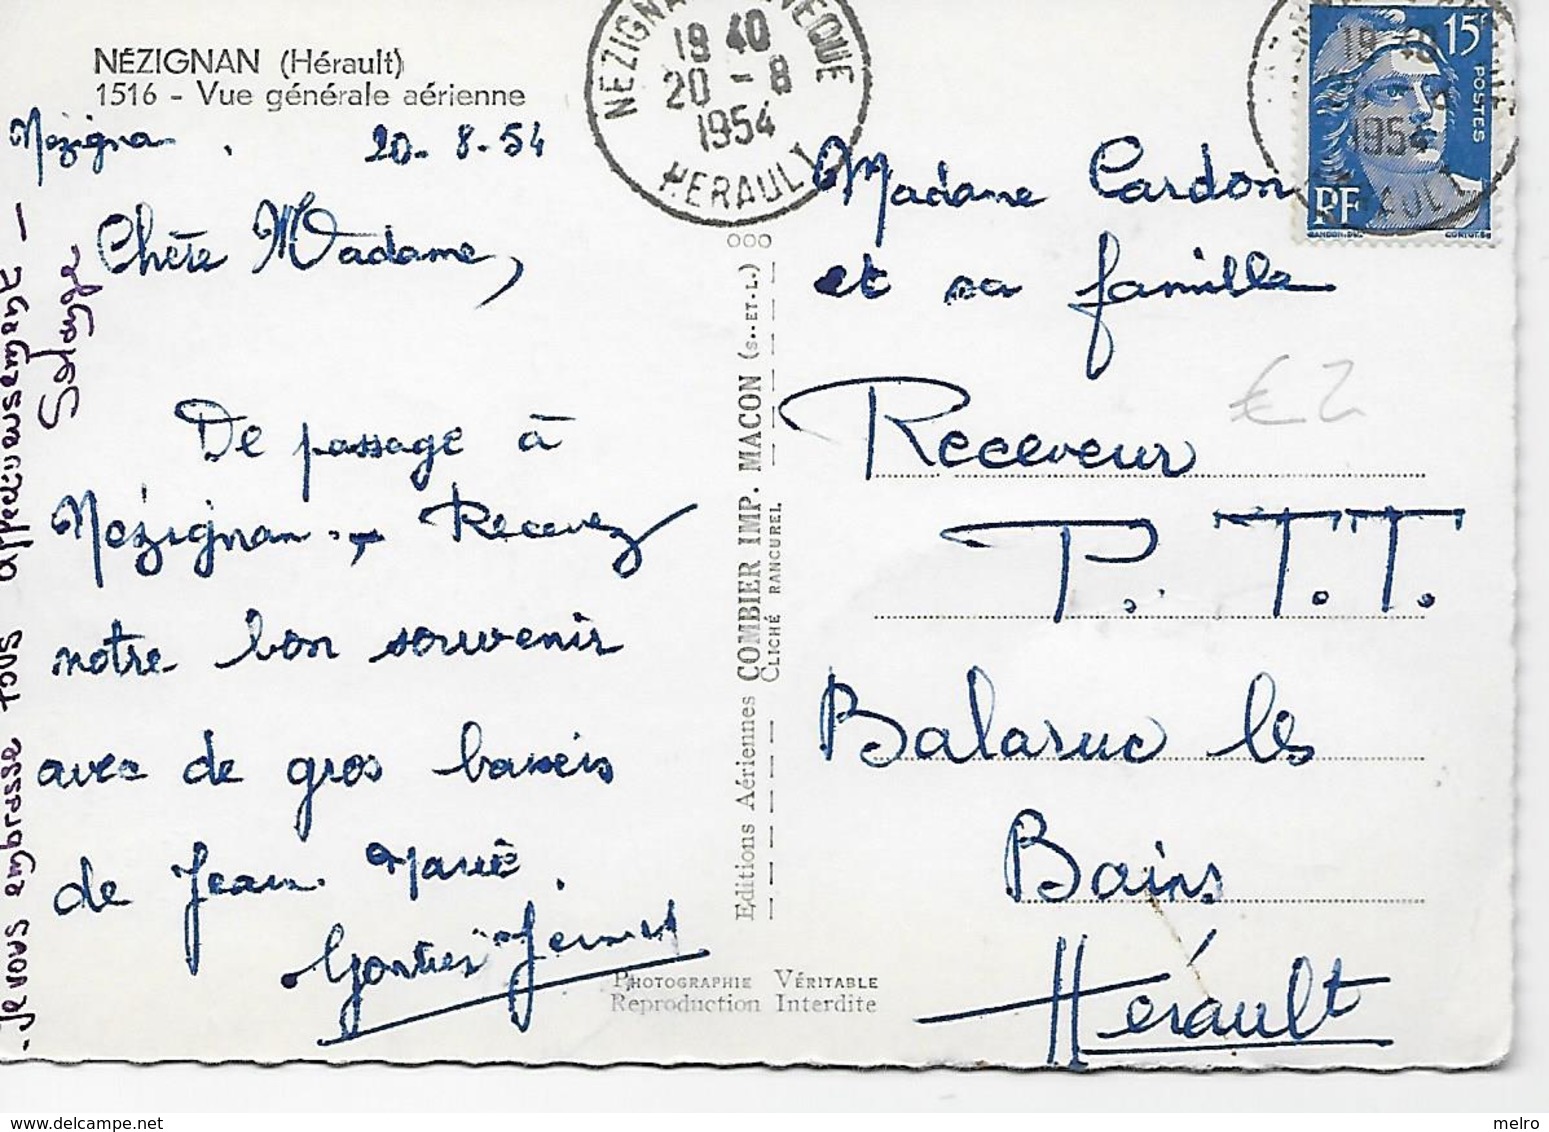 NÉZIGNAN (Hérault)
1516 - Vue générale aérienne
Nézigna . 20-8-54
Chère Madame,
De passage à
Nézignan. Recevez
notre bon souvenir
avec de gros baiseis
de Jean Marie.
- Je vous embrasse tous affectueusement -
Solange
19 40
20 - 8
1954
HERAULT
15F
POSTES
RF
19 40
1954
000
Editions Aériennes COMBIER IMP. MACON (S.-ET-L.)
CLICHÉ RANCUREL
PHOTOGRAPHIE VÉRITABLE
Reproduction Interdite
Madame Cardon
et sa famille
€ 2
Receveur
P. T.T.
Balaruc les
Bains
Hérault
melro